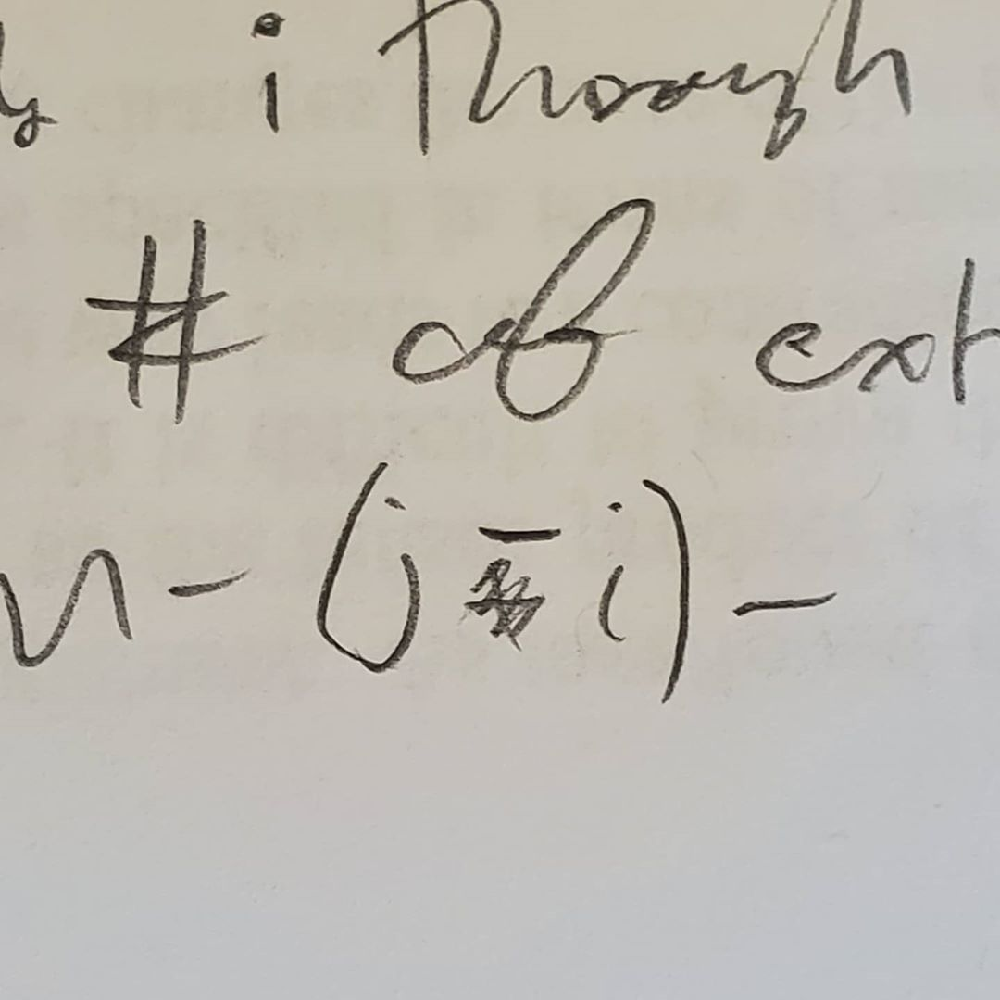 i through
# of ext
n - (j - i) -